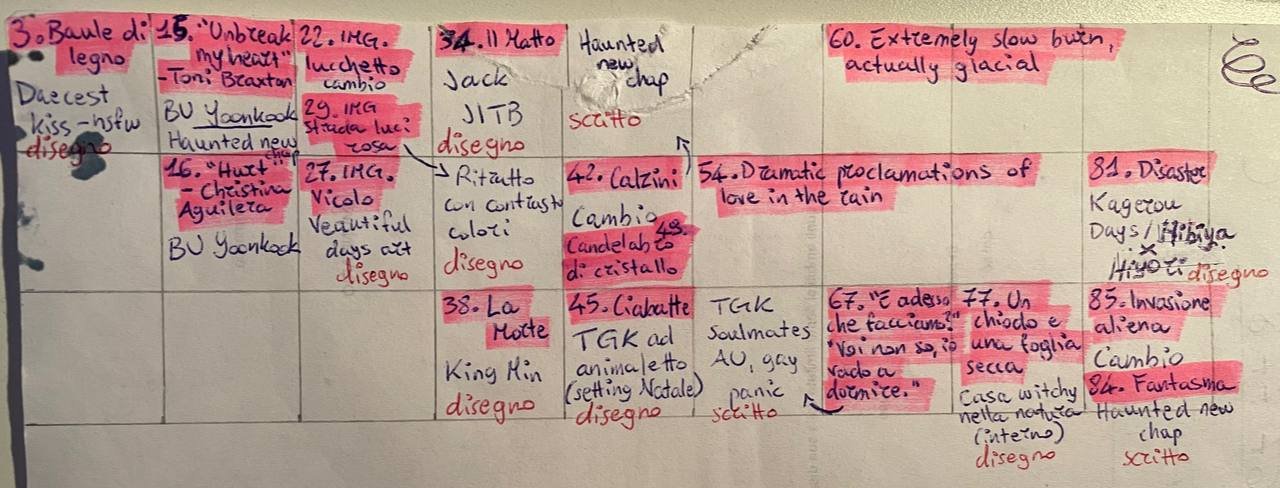 3. Baule di
legno
Daecest
kiss - nsfw
disegno
15. "Unbreak
my heart"
- Toni Braxton
BU Yoonkook
Haunted new
chap
22. IMG.
lucchetto
cambio
29. IMG
strada luci
rosa
34. Il Matto
Jack
JITB
disegno
Haunted
new
chap
scritto
60. Extremely slow burn,
actually glacial
16. "Hurt"
- Christina
Aguilera
BU Yoonkook
27. IMG.
Vicolo
Veautiful
days art
disegno
Ritratto
con contrasto
colori
disegno
42. Calzini
Cambio
49.
Candelabro
di cristallo
54. Dramatic proclamations of
love in the rain
81. Disaster
Kagerou
Days / Hibiya
x
Hiyori disegno
38. La
Morte
King Min
disegno
45. Ciabatte
TGK ad
animaletto
(setting Natale)
disegno
TGK
Soulmates
AU, gay
panic
scritto
67. "E adesso
che facciamo?"
"Voi non so, io
vado a
dormire."
77. Un
chiodo e
una foglia
secca
Casa witchy
nella natura
(interno)
disegno
85. Invasione
aliena
Cambio
84. Fantasma
Haunted new
chap
scritto